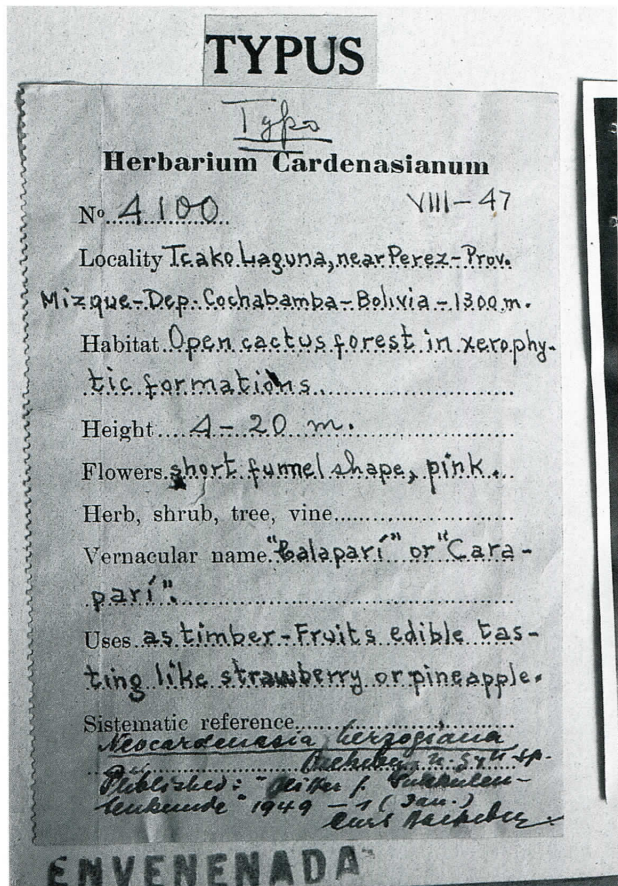 TYPUS
Typo
Herbarium Cardenasianum
Nº 4100 VIII-47
Locality Tcako Laguna, near Perez-Prov.
Mizque-Dep. Cochabamba-Bolivia-1300 m.
Habitat Open cactus forest in xerophy-
tic formations.
Height 4-20 m.
Flowers short funnel shape, pink.
Herb, shrub, tree, vine
Vernacular name "Calaparí" or "Cara-
parí".
Uses as timber-Fruits edible tas-
ting like strawberry or pineapple.
Sistematic reference
Neocardenasia herzogiana
Backebg. n. g. n. sp.
Published: "Blätter f. Sukkulen-
tenkunde" 1949 - 1 (Jan.)
Curt Backeberg
ENVENENADA